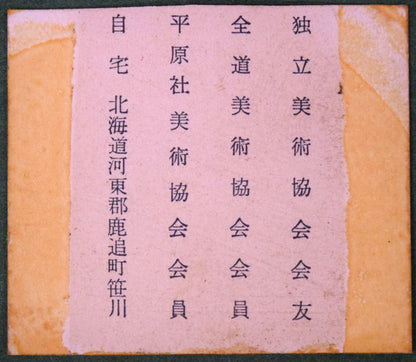 独立美術協会会友
全道美術協会会員
平原社美術協会会員
自宅 北海道河東郡鹿追町笹川